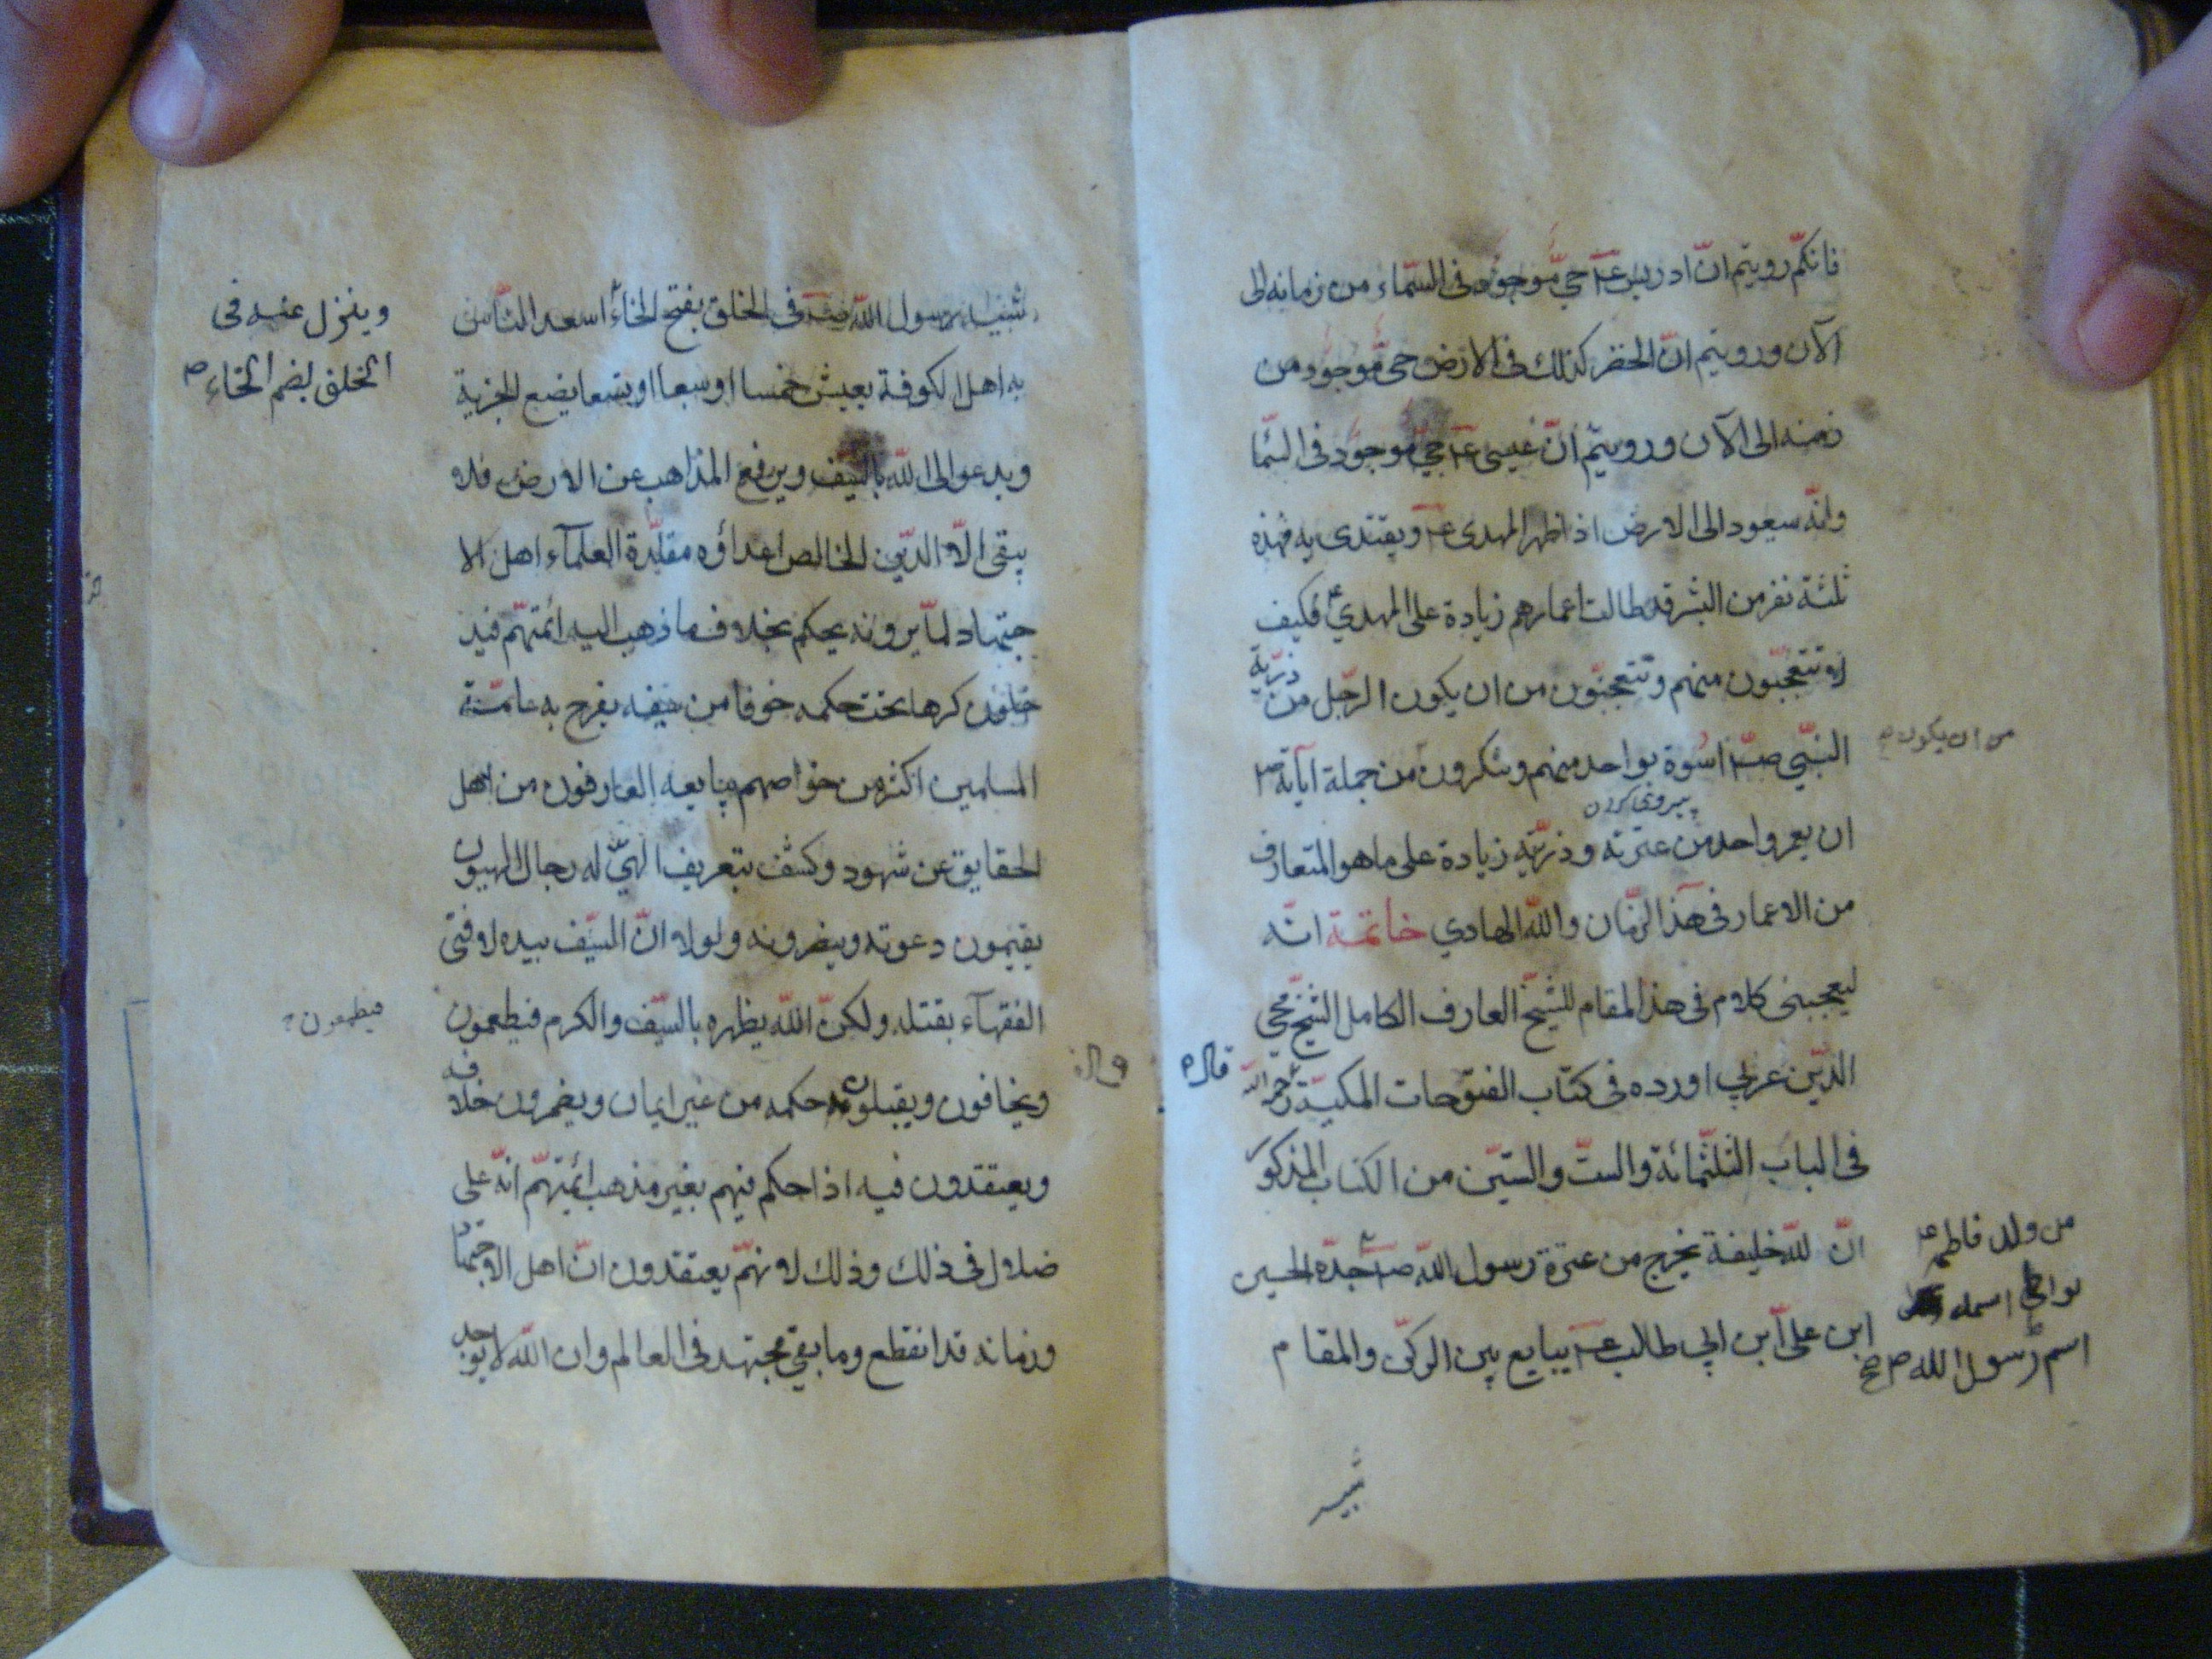 فانكم رويتم انّ ادريس عـ حيّ موجود فى السّماء من زمانه الى
الآن ورويتم انّ الخضر كذلك فى الارض حىّ موجود من
زمنه الى الآن ورويتم انّ عيسى عـ حيّ موجود فى السّما
وانّه سيعود الى الارض اذا ظهر المهدى عـ ويقتدى به فهذه
ثلثة نفر من البشر قد طالت اعمارهم زيادة على المهديّ فكيف
لا تتعجّبون منهم وتتعجّبون من ان يكون الرّجل من ذرّية
النبّي صـ اسوة بواحد منهم وتنكرون من جملة آياته
من ان يكون
پيروى كردن
ان يعمر واحد من عترته وذرّيّته زيادة على ما هو المتعارف
من الاعمار فى هذا الزّمان واللّه الهادي خاتمة انّه
ليعجبنى كلام فى هذا المقام للشّيخ العارف الكامل الشّيخ محيي
الدّين عربي اورده فى كتاب الفتوحات المكيّة رحمه اللّه
قال
فى الباب الثلثّمائة والستّ والستيّن من الكتاب المذكور
انّ للّه خليفة يخرج من عترة رسول اللّه صـ جدّه الحسين
من ولد فاطمه
يواطى اسمه
اسم رّسول الله
ابن علىّ ابن ابي طالب عـ يبايع بين الركن والمقام
شبيه
شبيه برسول اللّه صـ فى الخلق بفتح الخاء اسعد النّاس
وينزل عنه فى
الخلق بضم الخاء
به اهل الكوفة يعيش خمسا او سبعا او تسعا يضع الجزية
ويدعو الى اللّه بالسّيف ويرفع المذاهب عن الارض فلا
يبقى الّا الدّين الخالص اعداؤه مقلّدة العلمآء اهل الا
جتهاد لما يرونه يحكم بخلاف ما ذهب اليه ائمّتهم فيد
خلون كرها تحت حكمه خوفا من سيفه يفرح به عامّة
المسلمين اكثر من خواصهم يبايعه العارفون من اهل
الحقايق عن شهود وكشف بتعريف الهيّ له رجال الهيون
يقيمون دعوته وينصرونه ولولا انّ السّيف بيده لافتى
الفقهآء بقتله ولكنّ اللّه يظهره بالسّيف والكرم فيطمعون
فيطمعون
ويخافون ويقبلون حكمه من غير ايمان ويضمرون خلافه
ويعتقدون فيه اذا حكم فيهم بغير مذهب ائمّتهم انّه على
ضلال فى ذلك وذلك لانهّم يعتقدون انّ اهل الاجتهاد
وزمانه قد انقطع وما بقي مجتهد فى العالم وان اللّه لا يوجد